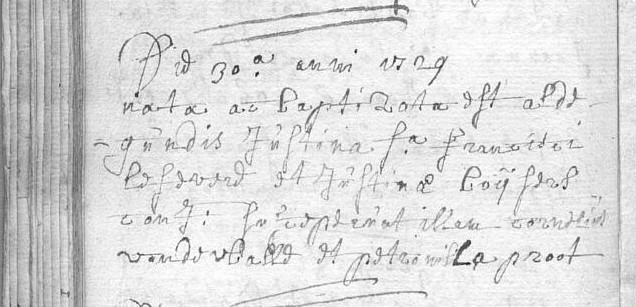 Did 30.a anni 1729
nata ac baptizata est alde-
gundis Justina f.a francisci
lefeverd et Justinæ boÿsers
conJ: susceperunt illam cornelius
vandewalle et petronilla proot